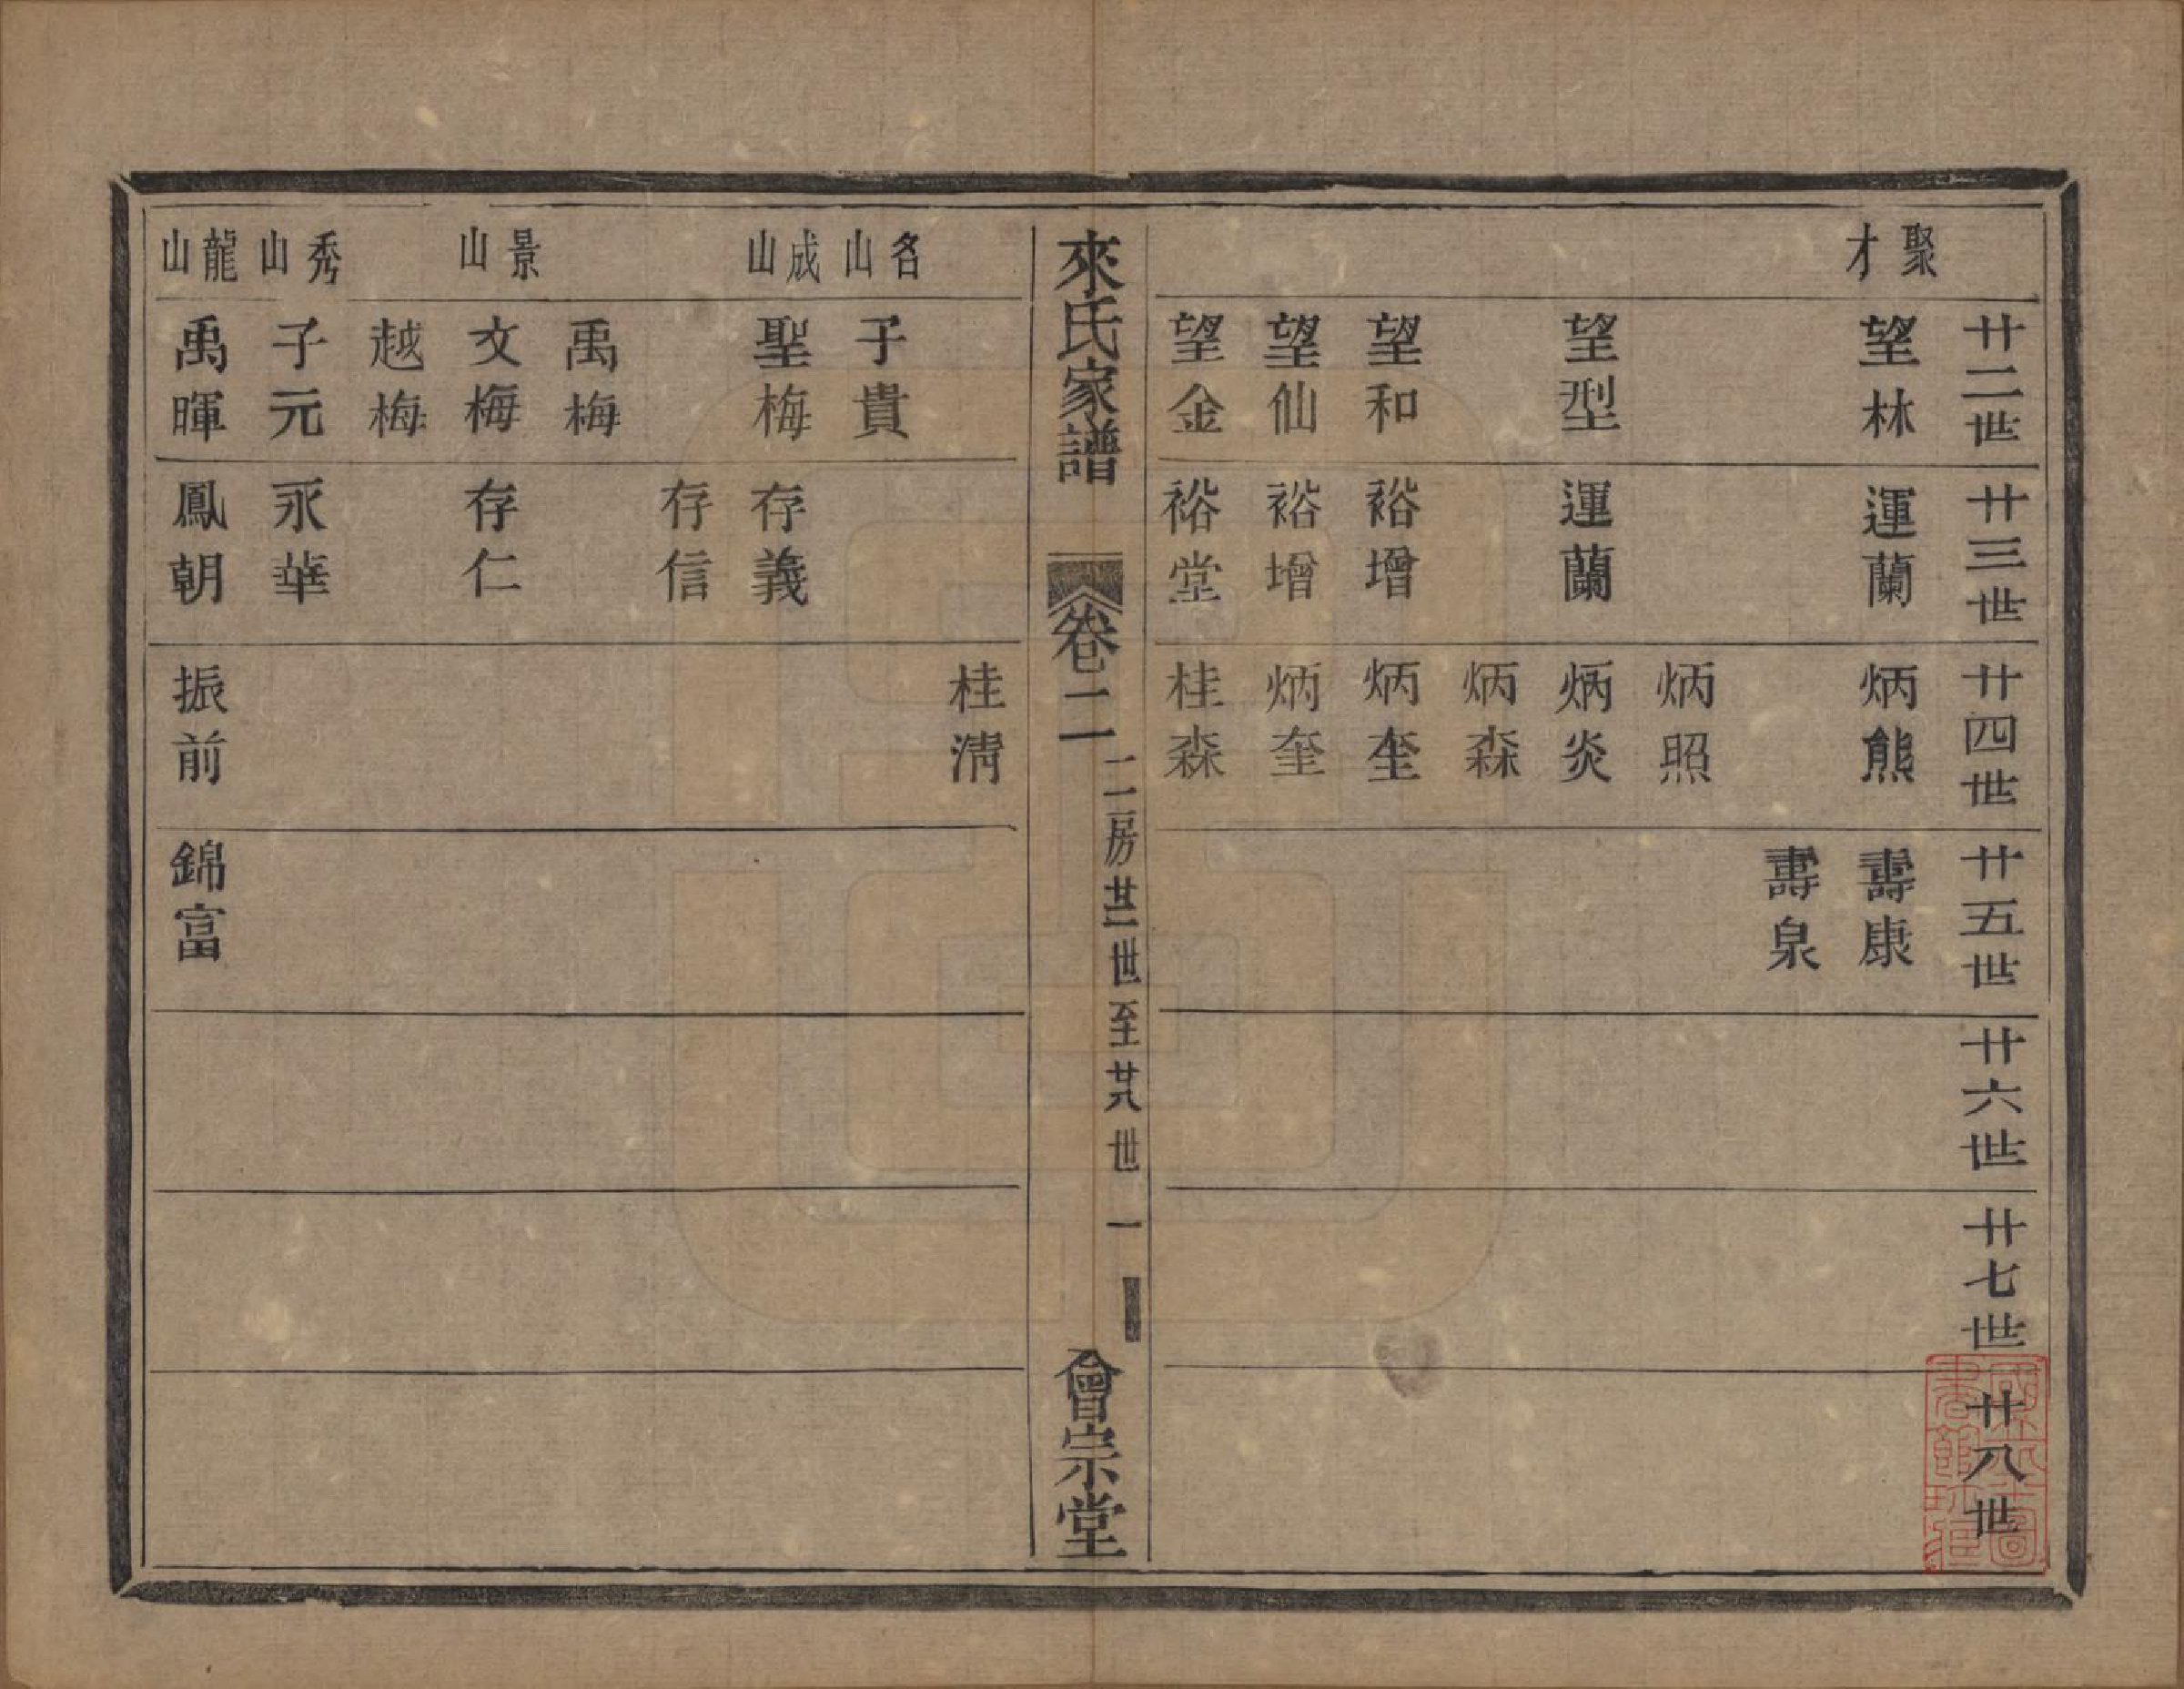 廿二世
廿三世
廿四世
廿五世
廿六世
廿七世
廿八世
聚才
望林
運蘭
炳熊
壽康
壽泉
炳照
望型
運蘭
炳炎
炳森
望和
裕增
炳奎
望仙
裕增
炳奎
望金
裕堂
桂森
來氏家譜
卷二
二房廿二世至廿八世
一
會宗堂
桂清
名山
子貴
成山
聖梅
存義
存信
禹梅
景山
文梅
存仁
越梅
秀山
子元
永華
龍山
禹暉
鳳朝
振前
錦富